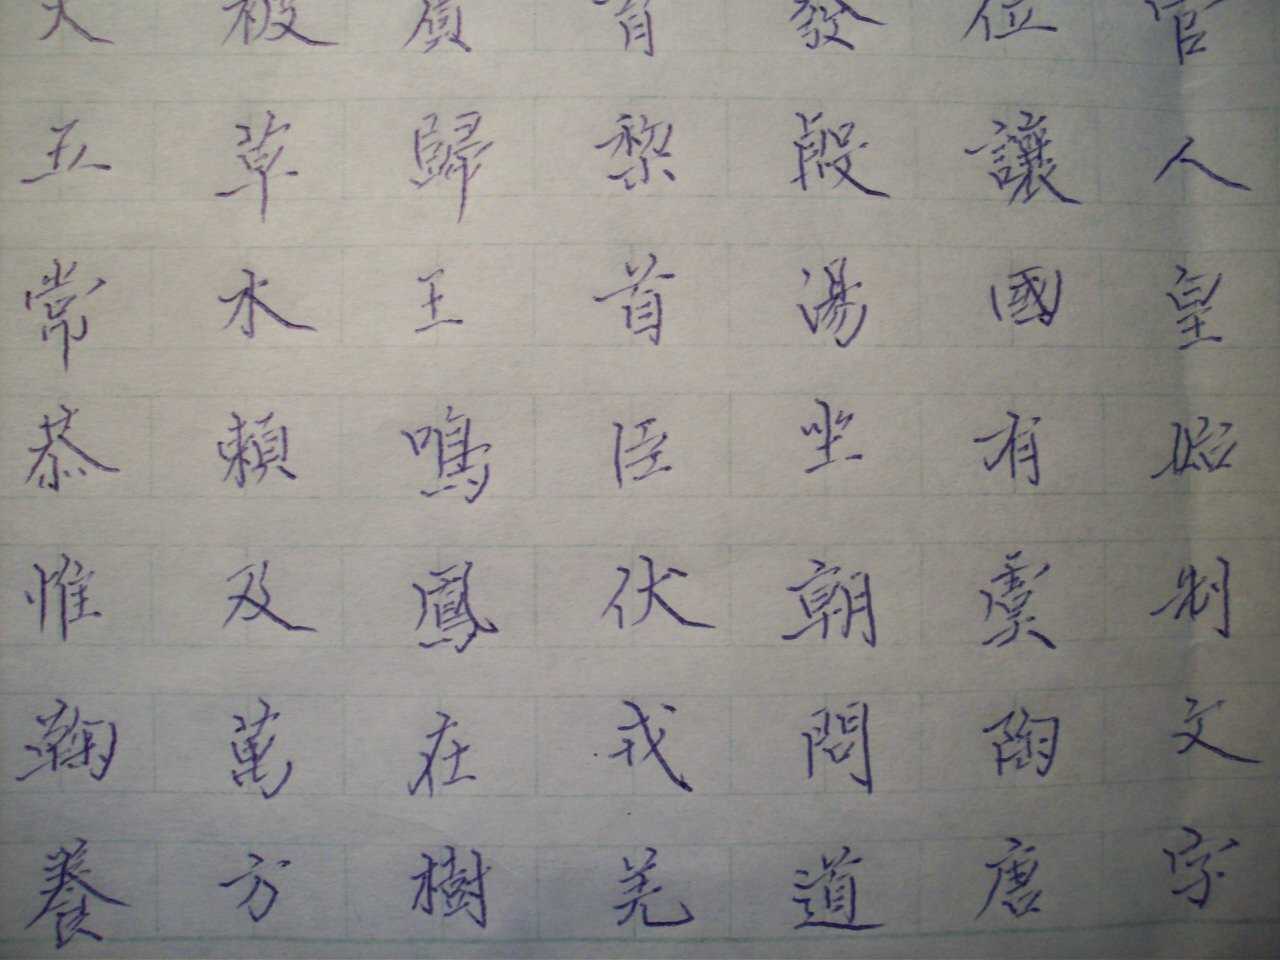 官人皇始制文字
位讓國有虞陶唐
發殷湯坐朝問道
育黎首臣伏戎羌
賓歸王鳴鳳在樹
被草水賴及萬方
大五常恭惟鞠養